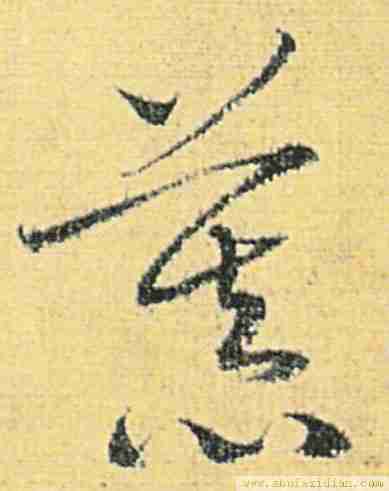 慈
www.shufazidian.com